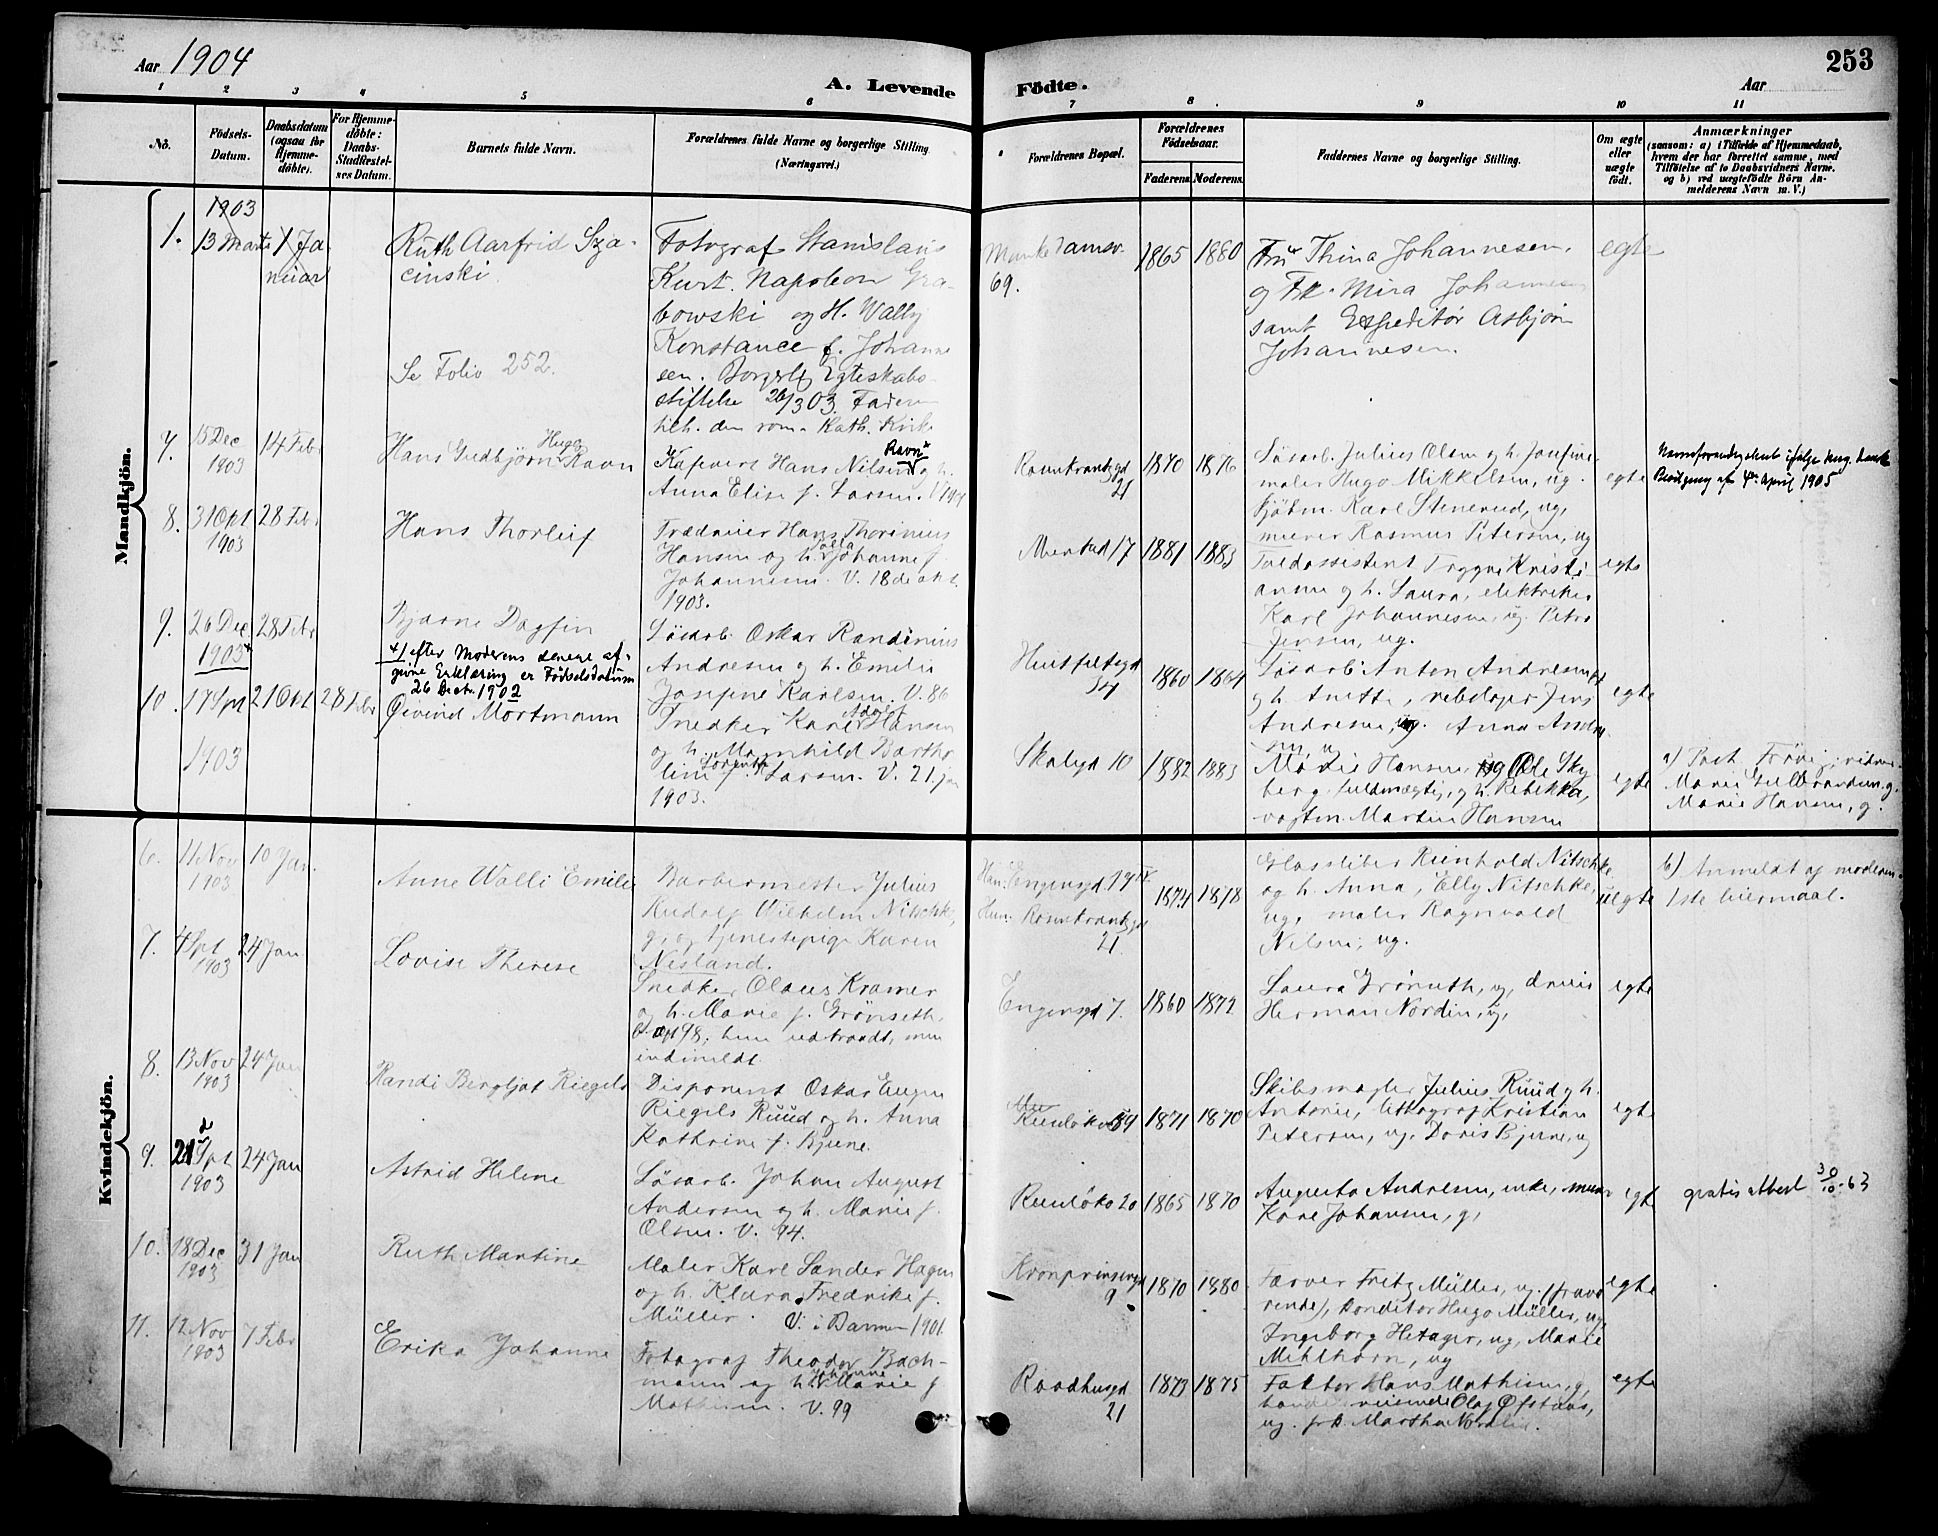 Aar 1904
A. Levende Födte.
253
Aar
1 2 3 4 5 6 7 8 9 10 11
No.
Födsels-Datum.
Daabsdatum (ogsaa for Hjemme-døbte).
For Hjemme-døbte: Daabs-Stadfæstelses Datum.
Barnets fulde Navn.
Forældrenes fulde Navne og borgerlige Stilling
(Næringsvei.)
Forældrenes Bopæl.
Forældrenes Födselsaar.
Faderens. Moderens.
Faddernes Navne og borgerlige Stilling.
Om ægte eller uægte födt.
Anmærkninger
(saasom: a) i Tilfælde af Hjemmedaab, hvem der har forrettet samme, med Tilføielse af to Daabsvidners Navne, og b) ved uægtefödte Börn Anmelderens Navn m. V.)
Mandkjön.
1.
1903
13 Marts
1 Ja-
nuar
Ruth Aarfrid Sza-
cinski
Se Folio 252.
Fotograf Stanislaus
Kurt Napoleon Gra-
bowski og H. Wally
Konstance f. Johanne
sen. Borgerlig Egteskabs-
stiftelse 26/3 03. Faderen
tilh. den rom. Kath. Kirke
Munkedamsv.
69.
1865 1880
Fru Thina Johannesen,
og Frk. Mira Johannesen
samt Expeditør Asbjørn
Johannesen.
egte
7.
15 Dec
1903
14 Febr
Hans Gudbjørn Hugo Ravn
Hans Nilsen Ravn og h.
Anna Elise f. Larsen.
Rosenkrantzgd
21
1870 1876
Løsarb. Julius Olsen og h. Josefine,
maler Hugo Mikkelsen, ug.
Karl Stenerud, ug,
murer Rasmus Petersen, ug
egte
Bevilgning af 4de April 1905
8.
31 Okt
1903
28 Febr
Hans Thorleif
Hans Thorinius
Hansen og h. Johanne f.
Johannesen. V. 18de okt.
1903.
17
1881 1883
Toldassistent Trygve Kristi-
ansen og h. Laura, elektriker
Karl Johannesen, ug. Petra
Jensen, ug.
egte
9.
26 Dec
1903
28 Febr
Bjarne Dagfin
x) efter Moderens senere af-
givne Erklæring er Fødselsdatum
26 Decbr. 1902
Løsarb. Oskar Randinius
Andresen og h. Emilie
Josefine Karlsen. V. 86
Huitfeltsgd
34
1860 1864
Løsarb. Anton Andresen
og h. Anette, rebslager Jens
Andresen, ug. Anna Andre
sen, ug
egte
10.
17 Spt
1903
21 Okt 28 Febr
Øivind Mortmann
Snedker Karl Adolf Hansen
og h. Magnhild Bartho
line f. Larsen. V. 21. jan
1903.
Skolegd 10
1882 1883
Marie Hansen, ug Ole Sky
berg, fuldmægtig, og h. Rebekka,
vogtm. Martin Hansen
egte
a) Past. Frøvig; vidner
Marie Hansen, g.
Kvindekjön.
6.
11 Nov
1903
10 Jan.
Anne Walli Emilie
Barbermester Julius
Rudolf Wilhelm Nitschke,
g, og tjenestepige Karen
Nesland.
Han: Engensgd 19 IV.
Hun: Rosenkrantzgd
21
1874 1878
Glassliber Reinhold Nitschke
og h. Anna, Elly Nitschke,
ug, maler Ragnvald
Nilsen, ug.
uegte
b) Anmeldt af moderen
1ste leiermaal.
7.
4 Spt
1903
24 Jan
Lovise Therese
Snedker Olaus Kramer
og h. Marie f. Grønseth.
98, hun udtraadt, men
indmeldt.
Engensgd 7.
1860 1872
Laura Grønseth, ug,
Herman Nordin, ug,
egte
8.
13 Nov
1903
24 Jan
Randi Bergljot Riegels
Disponent Oskar Eugen
Riegels Ruud og h. Anna
Kathrine f. Bjerne.
59
1871 1870
Skibsmægler Julius Ruud og h.
Antonie, litograf Kristian
Petersen, ug. Doris Bjerne, ug
egte
9.
21 Spt
1903
24 Jan
Astrid Helene
Løsarb. Johan August
Andersen og h. Marie f.
Olsen. V. 94.
Ruseløkv 20
1865 1870
Augusta Andresen, enke, murer
Karl Johansen, g,
egte
gratis attest 30/10-63
10.
18 Dec
1903
31 Jan
Ruth Martine
Maler Karl Sander Hagen
og h. Klara Fredrike f.
Müller. V. i Barmen 1901.
Kronprinsensgd
9
1870 1880
Farver Fritz Müller, ug. (fravæ
rende), konditor Hugo Müller, ug
Ingeborg Hetager, ug, Marie
Mehlhorn, ug
egte
11.
12 Nov
1903
7 Febr
Erika Johanne
Fotograf Theodor Bach-
mann og h. Johanne Marie f.
Mathisen. V. 99
Raadhusgd
21
1873 1875
Faktor Hans Mathisen, g,
handelsreisende Olaf Øfstaas,
ug. frk. Martha Nordlie.
egte